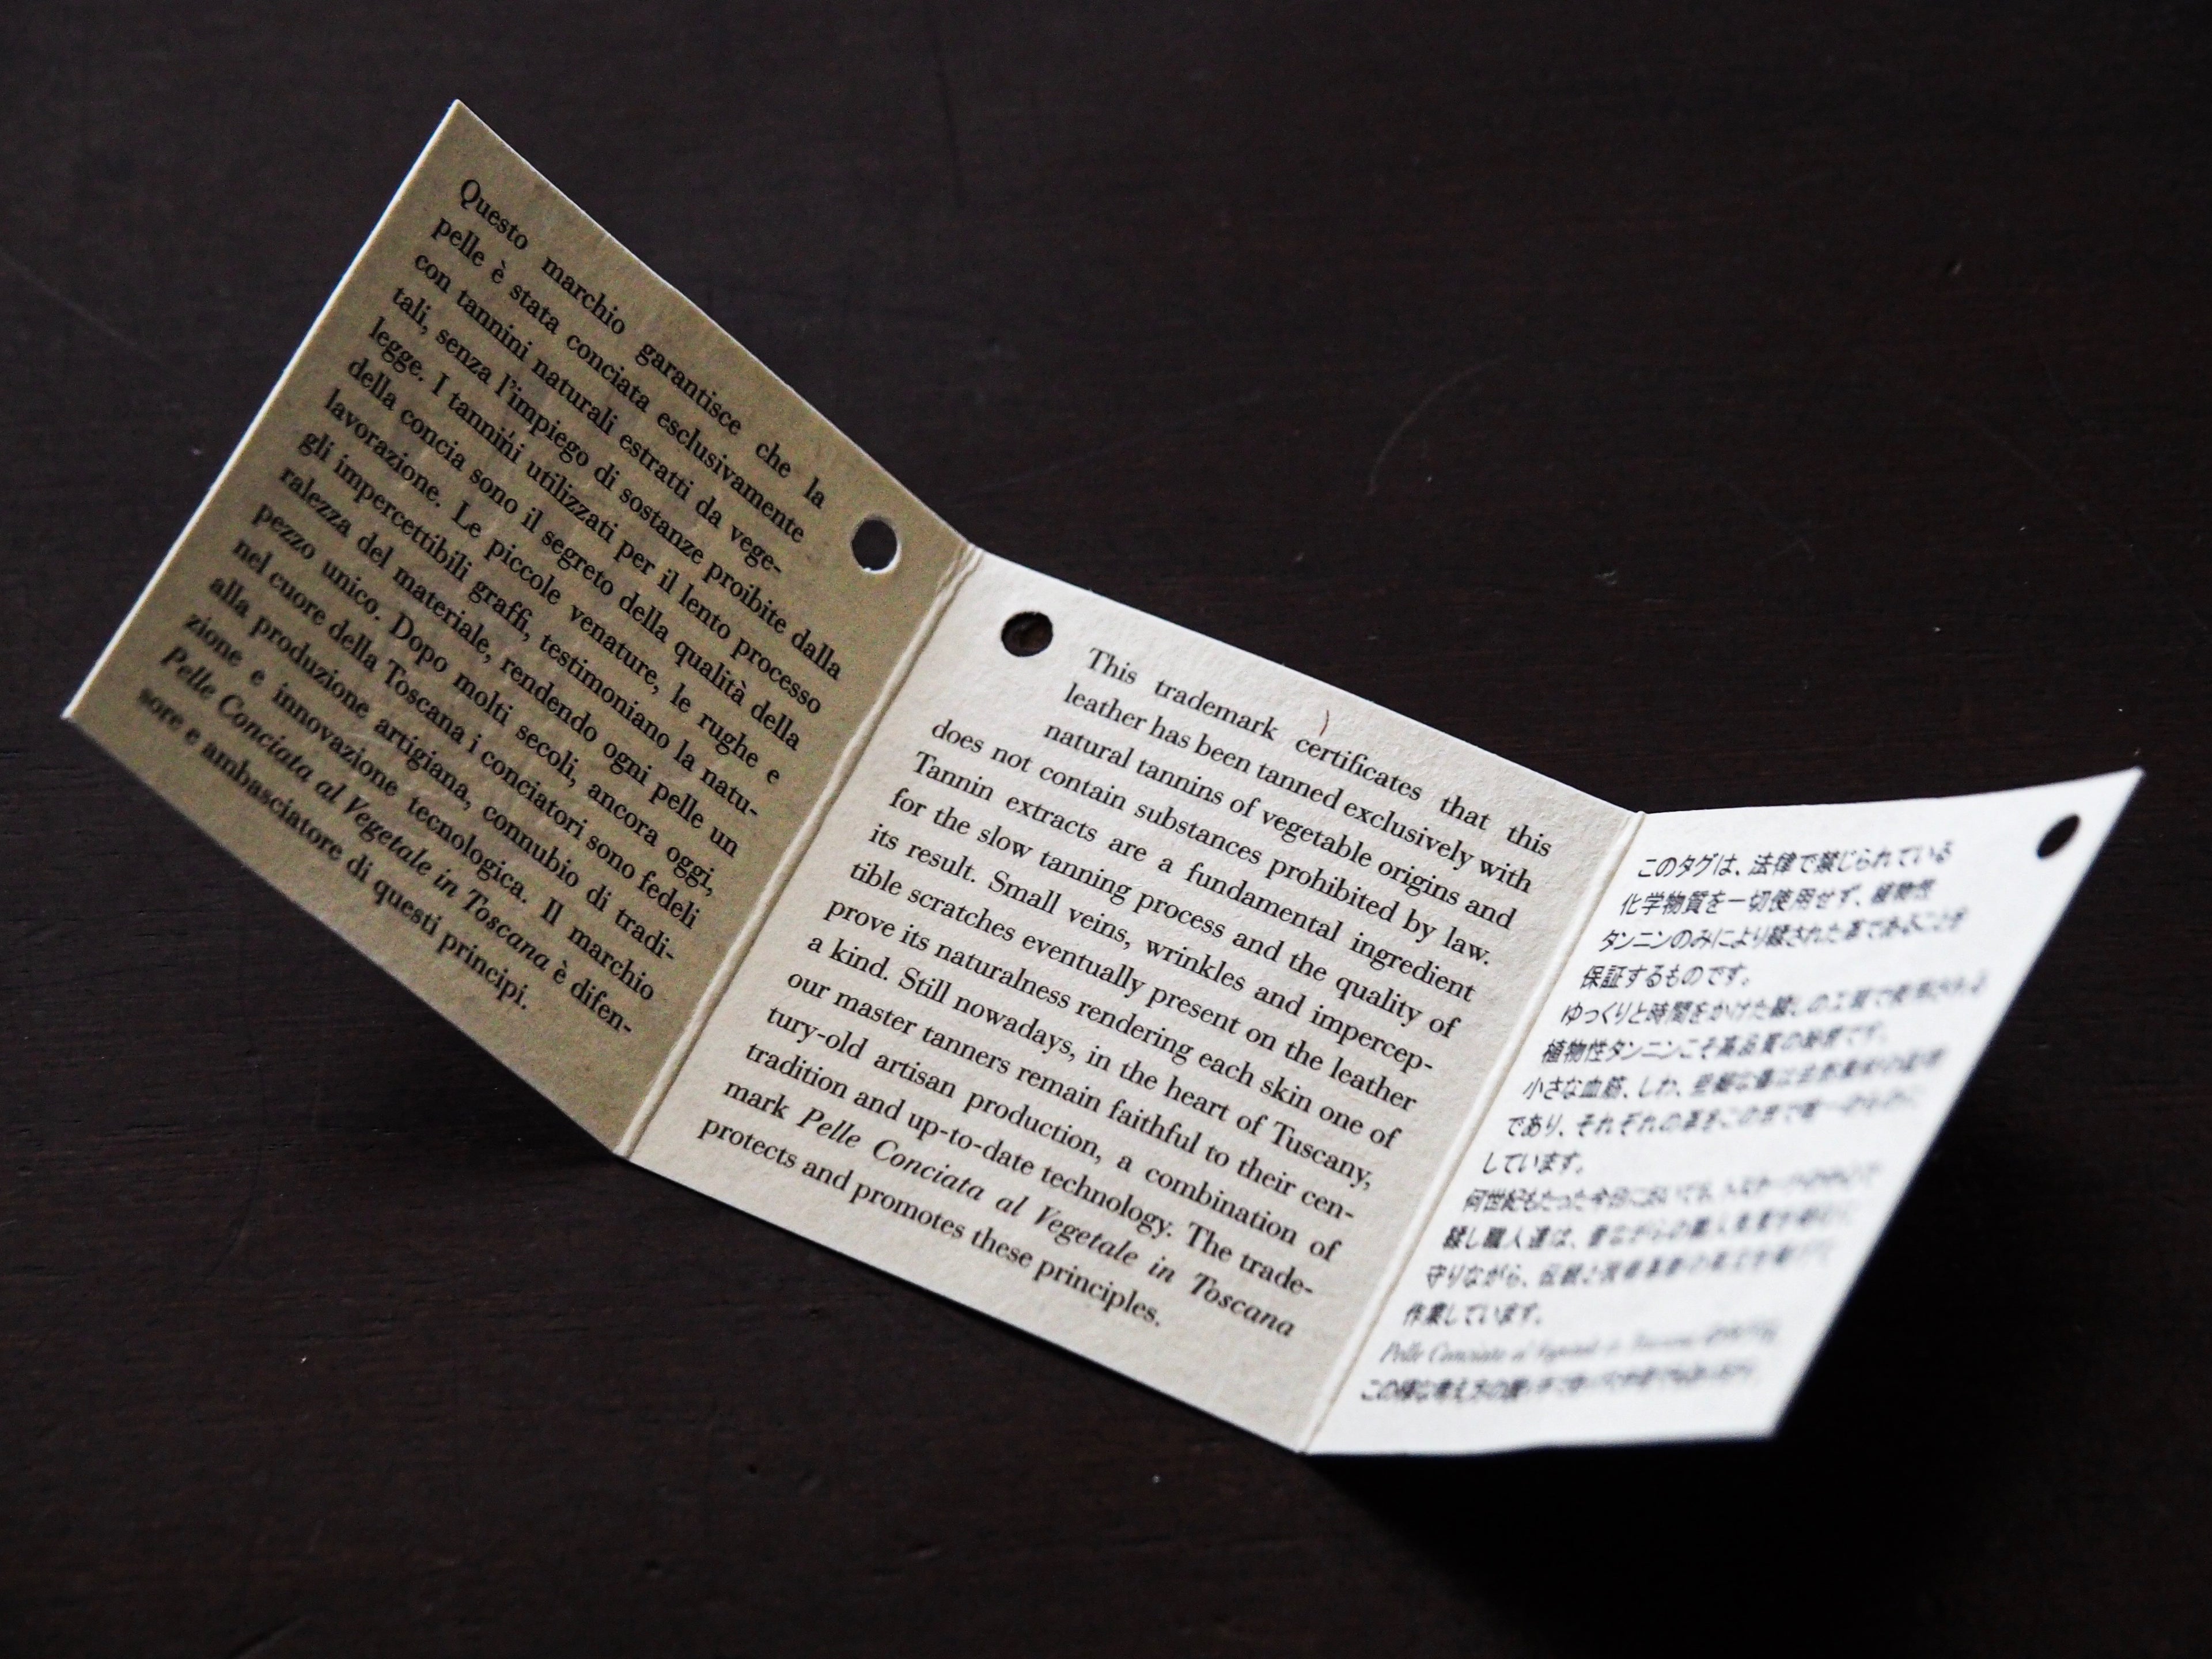 Questo marchio garantisce che la
pelle è stata conciata esclusivamente
con tannini naturali estratti da vege-
tali, senza l'impiego di sostanze proibite dalla
legge. I tannini utilizzati per il lento processo
della concia sono il segreto della qualità della
lavorazione. Le piccole venature, le rughe e
gli impercettibili graffi, testimoniano la natu-
ralezza del materiale, rendendo ogni pelle un
pezzo unico. Dopo molti secoli, ancora oggi,
nel cuore della Toscana i conciatori sono fedeli
alla produzione artigiana, connubio di tradi-
zione e innovazione tecnologica. Il marchio
Pelle Conciata al Vegetale in Toscana è difen-
sore e ambasciatore di questi principi.
This trademark certificates that this
leather has been tanned exclusively with
natural tannins of vegetable origins and
does not contain substances prohibited by law.
Tannin extracts are a fundamental ingredient
for the slow tanning process and the quality of
its result. Small veins, wrinkles and impercep-
tible scratches eventually present on the leather
prove its naturalness rendering each skin one of
a kind. Still nowadays, in the heart of Tuscany,
our master tanners remain faithful to their cen-
tury-old artisan production, a combination of
tradition and up-to-date technology. The trade-
mark Pelle Conciata al Vegetale in Toscana
protects and promotes these principles.
このタグは、法律で禁じられている
化学物質を一切使用せず、植物性
タンニンのみにより鞣された革であることを
保証するものです。
ゆっくりと時間をかけた鞣しの工程で使用される
植物性タンニンこそ高品質の秘密です。
小さな血筋、しわ、
であり、それぞれの革をこの世で唯一のものに
しています。
何世紀もたった今日においても、トスカーナの中心で
鞣し職人達は、昔ながらの職人
守りながら、伝統と技術革新の
作業しています。
Pelle Conciata al Vegetale in Toscana
この様な考え方の